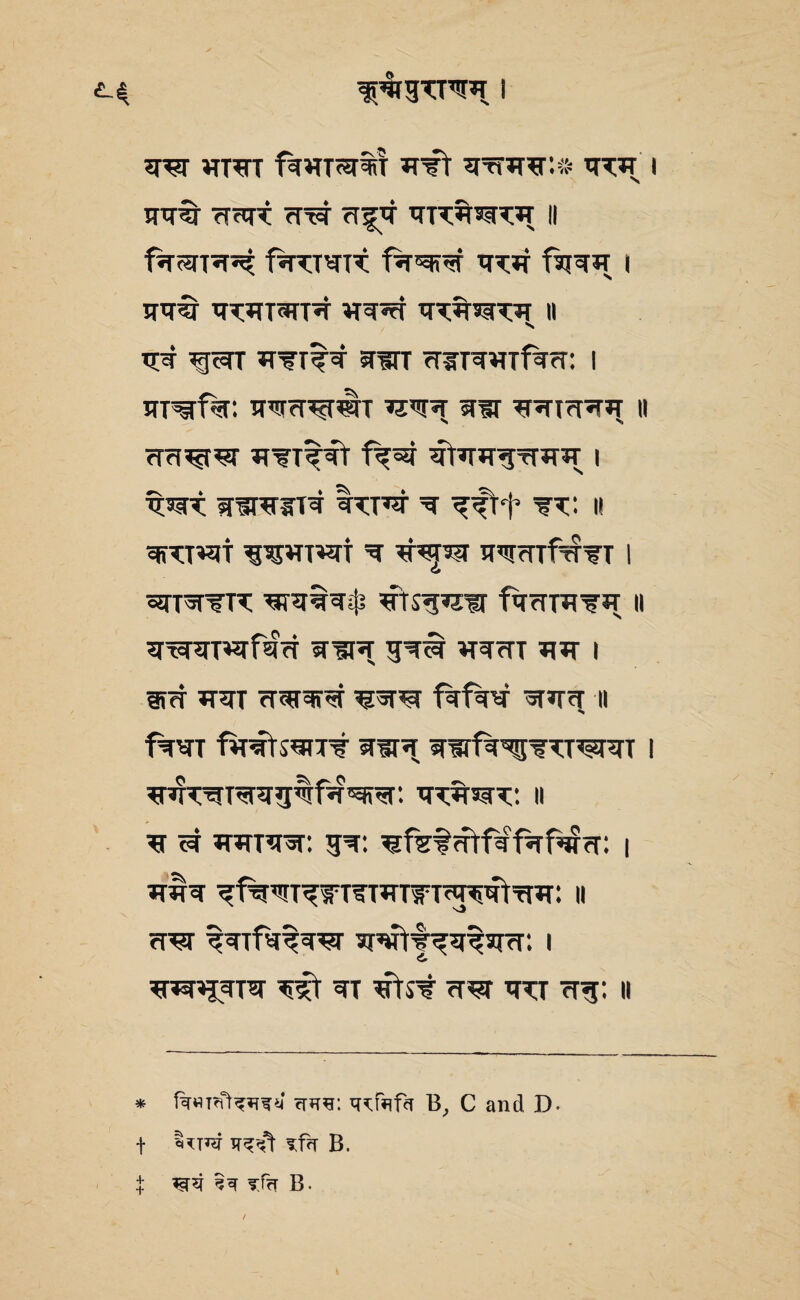 ८६ कूर्म्मपुराणम् ।
यस्य भासा विभात्यर्को महो यत्तमसः* परम् ।
प्रपद्ये तत्परं तत्त्वं तद्रूपं पारमेश्वरम् ॥
नित्यानन्दं निराधारं निष्कलं परमं शिवम् ।
प्रपद्ये परमात्मानं भवन्तं परमेश्वरम् ॥
एवं स्तुत्वा महादेवं ब्रह्मा तद्भावभावितः ।
प्राञ्जलिः प्रणतस्तस्थौ गृणन् ब्रह्म सनातनम् ॥
ततस्तस्य महादेवो दिव्यं योगमनुत्तमम् ।
ऐश्वरं ब्रह्मसद्भावं वैराग्यं च ददौ† हरः ॥
कराभ्यां सुशुभाभ्यां च संस्पृश्य प्रणतार्त्तिहा ।
व्याजहार स्मयन्नेव‡ सोऽनुगृह्य पितामहम् ॥
यत्त्वयाभ्यर्थितं ब्रह्मन् पुत्रत्वे भवता मम ।
कृतं मया तत्सकलं सृजस्व विविधं जगत् ॥
त्रिधा भिन्नोऽस्म्यहं ब्रह्मन् ब्रह्मविष्णुहराख्यया ।
सर्गरक्षालयगुणैर्निष्कलः परमेश्वरः ॥
स त्वं ममाग्रजः पुत्रः सृष्टिहेतोर्विनिर्मितः ।
ममैव दक्षिणादङ्गाद्वामाङ्गात्पुरुषोत्तमः ॥
तस्य देवाधिदेवस्य शम्भोर्हृदयदेशतः ।
सम्बभूवाथ रुद्रो वा सोऽहं तस्य परा तनुः ॥
* तमसः परमिति B, C and D.
† वैराग्यं प्रददौ इति B.
‡ स्वयं देव इति B.